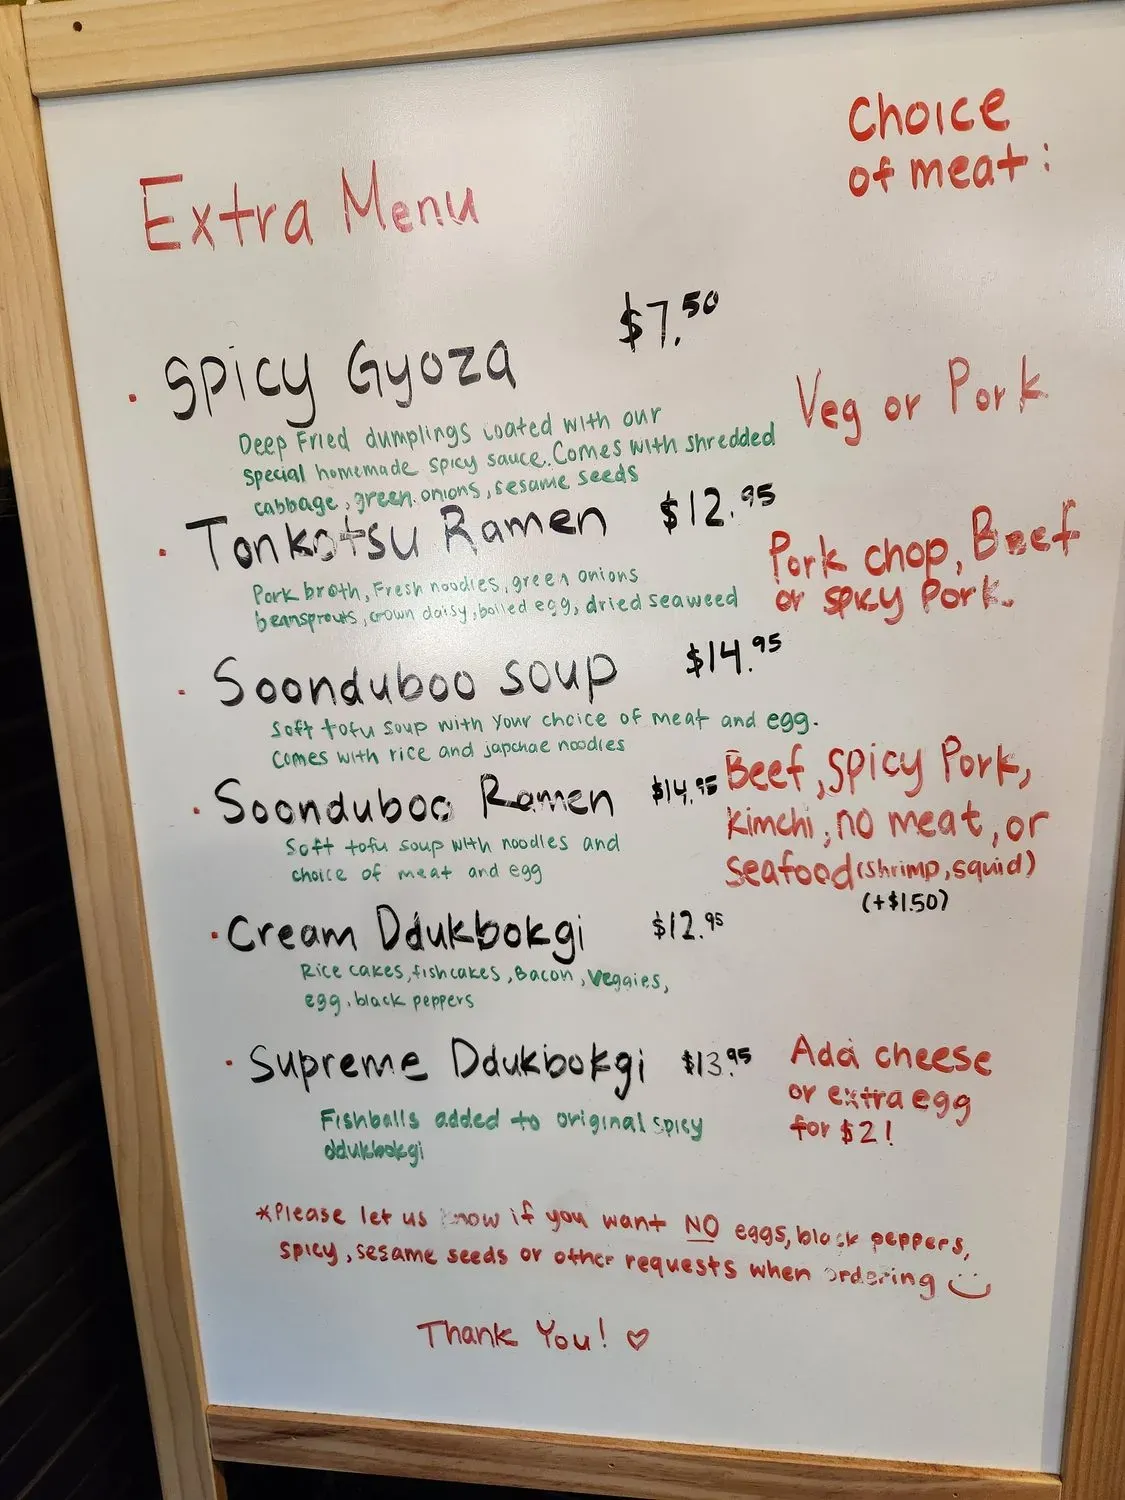 Choice
of meat:
Extra Menu
• Spicy Gyoza $7.50
Veg or Pork
Deep Fried dumplings coated with our
special homemade spicy sauce. Comes with shredded
cabbage, green onions, sesame seeds
• Tonkotsu Ramen $12.95
Pork chop, Beef
or spicy Pork.
Pork broth, Fresh noodles, green onions
beansprouts, crown daisy, boiled egg, dried seaweed
• Soonduboo soup $14.95
Soft tofu soup with your choice of meat and egg.
Comes with rice and japchae noodles
• Soonduboo Ramen $14.95
Beef, Spicy Pork,
kimchi, no meat, or
seafood (shrimp, squid)
(+$1.50)
Soft tofu soup with noodles and
choice of meat and egg
• Cream Ddukbokgi $12.95
Rice cakes, fishcakes, Bacon, Veggies,
egg, black peppers
• Supreme Ddukbokgi $13.95
Add cheese
or extra egg
for $2!
Fishballs added to original spicy
ddukbokgi
*Please let us know if you want NO eggs, black peppers,
spicy, sesame seeds or other requests when ordering
Thank You! ♡